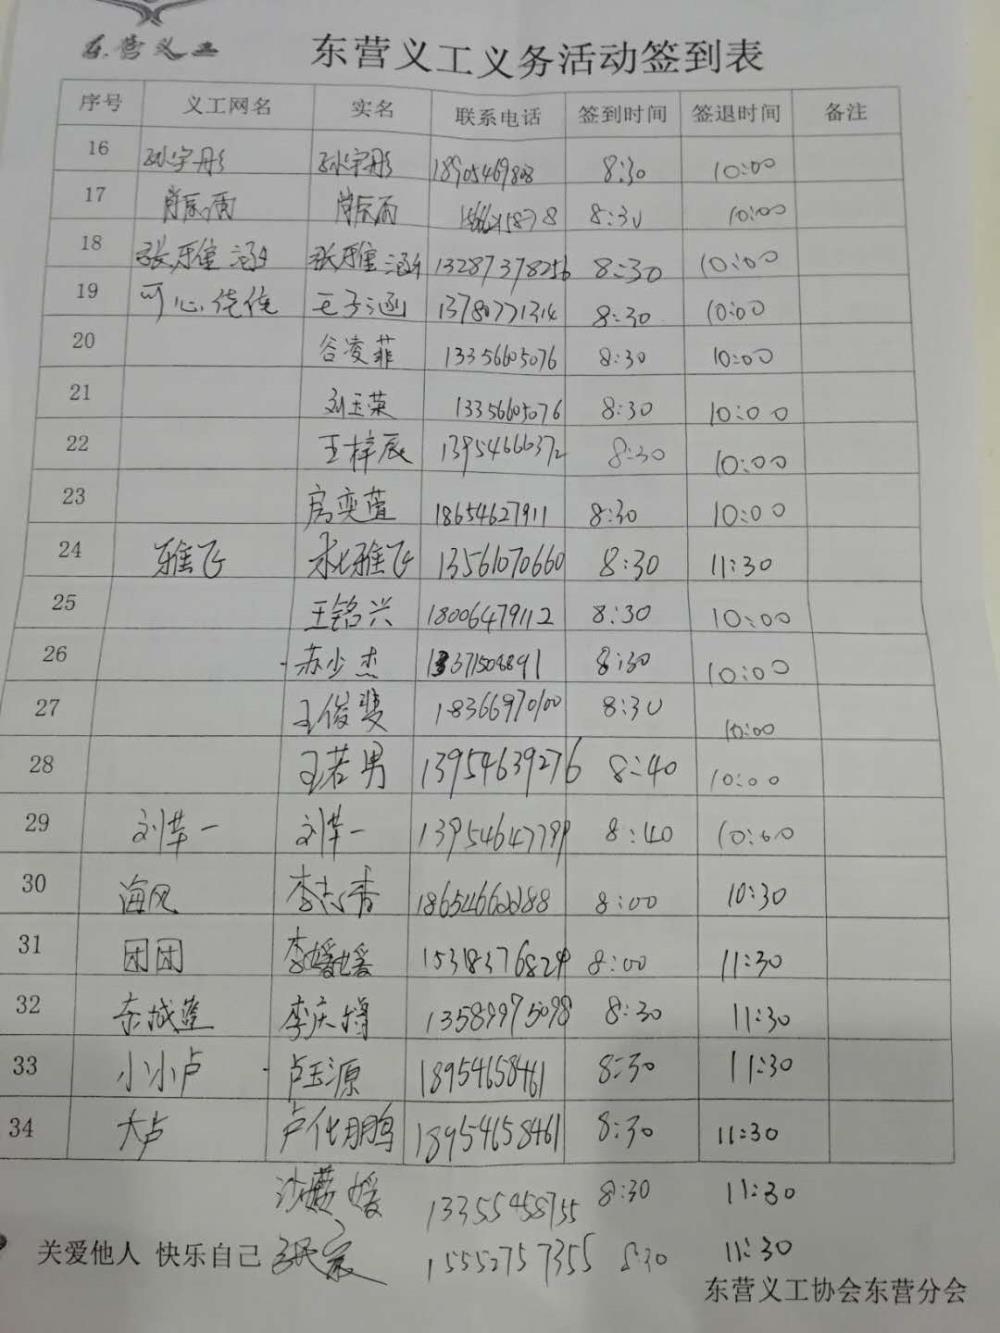 东营义工 东营义工义务活动签到表
序号 义工网名 实名 联系电话 签到时间 签退时间 备注
16 孙宇彤 孙宇彤 8:30 10:00
17 肖辰雨 肖辰雨 8:30 10:00
18 张雅涵 张雅涵 13287378256 8:30 10:00
19 可心佬佬 王子涵 13780771314 8:30 10:00
20 谷凌菲 13356605076 8:30 10:00
21 刘玉荣 13356605076 8:30 10:00
22 王梓辰 13954666372 8:30 10:00
23 房奕萱 18654627911 8:30 10:00
24 雅飞 雅飞 13561070660 8:30 11:30
25 王铭兴 18006479112 8:30 10:00
26 苏少杰 8:30 10:00
27 王俊斐 18366970100 8:30 10:00
28 王若男 13954639276 8:40 10:00
29 刘莘一 刘莘一 13954647799 8:40 10:00
30 海风 李志香 18654662288 8:00 10:30
31 团团 李媛媛 15318376829 8:00 11:30
32 东城莲 李庆 13589975098 8:30 11:30
33 小小卢 卢玉源 18954658461 8:30 11:30
34 大卢 卢化鹏 18954658461 8:30 11:30
媛 13355458755 8:30 11:30
关爱他人 快乐自己 15552757355 8:30 11:30
东营义工协会东营分会